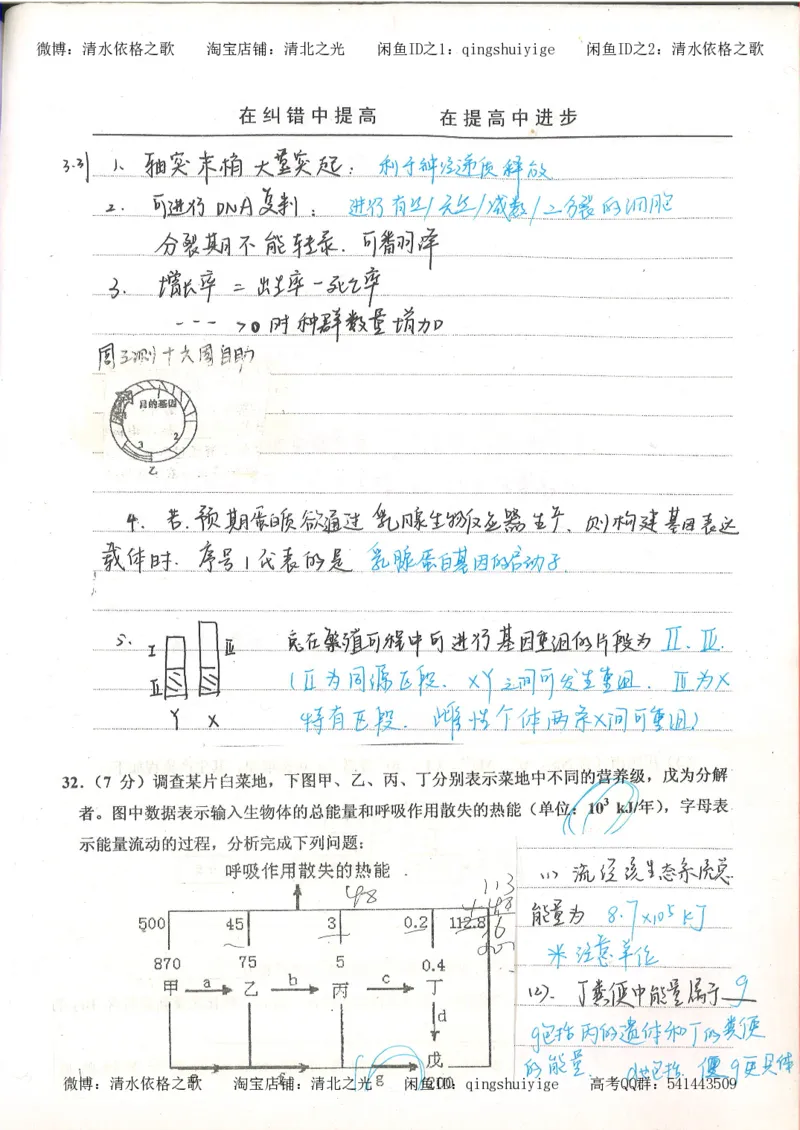 微博：清水依格之歌 淘宝店铺：清北之光 闲鱼ID之1：qingshuiyige 闲鱼ID之2：清水依格之歌
在纠错中提高 在提高中进步
3.31 1、轴突末梢大量突起：利于神经递质释放
2. 可进行DNA复制：进行有丝/无丝/减数/二分裂的细胞
分裂期不能转录.可翻译
3. 增长率=出生率-死亡率
--- >0时种群数量增加
周三测十六周自助
目的基因
1
3 2
乙
4. 若预期蛋白质欲通过乳腺生物反应器生产、则构建基因表达
载体时.序号1代表的是 乳腺蛋白基因的启动子.
5. I III 在繁殖过程中可进行基因重组的片段为 II、III.
II (II为同源区段.XY之间可发生重组.III为X
Y X 特有区段.雌性个体两条X间可重组)
32．（7 分）调查某片白菜地，下图甲、乙、丙、丁分别表示菜地中不同的营养级，戊为分解
者。图中数据表示输入生物体的总能量和呼吸作用散失的热能（单位：10³ kJ/年），字母表
示能量流动的过程，分析完成下列问题：
呼吸作用散失的热能
48
113
500 45 3 0.2 112.8
870 75 5 0.4
甲 a 乙 b 丙 c 丁
d
戊
e g 200
(1) 流经该生态系统总
能量为 8.7×10⁵ KJ
※注意单位
(2). 丁粪便中能量属于 g
g包括丙的遗体和丁的粪便
的能量.
微博：清水依格之歌 淘宝店铺：清北之光 闲鱼ID：qingshuiyige 高考QQ群：541443509